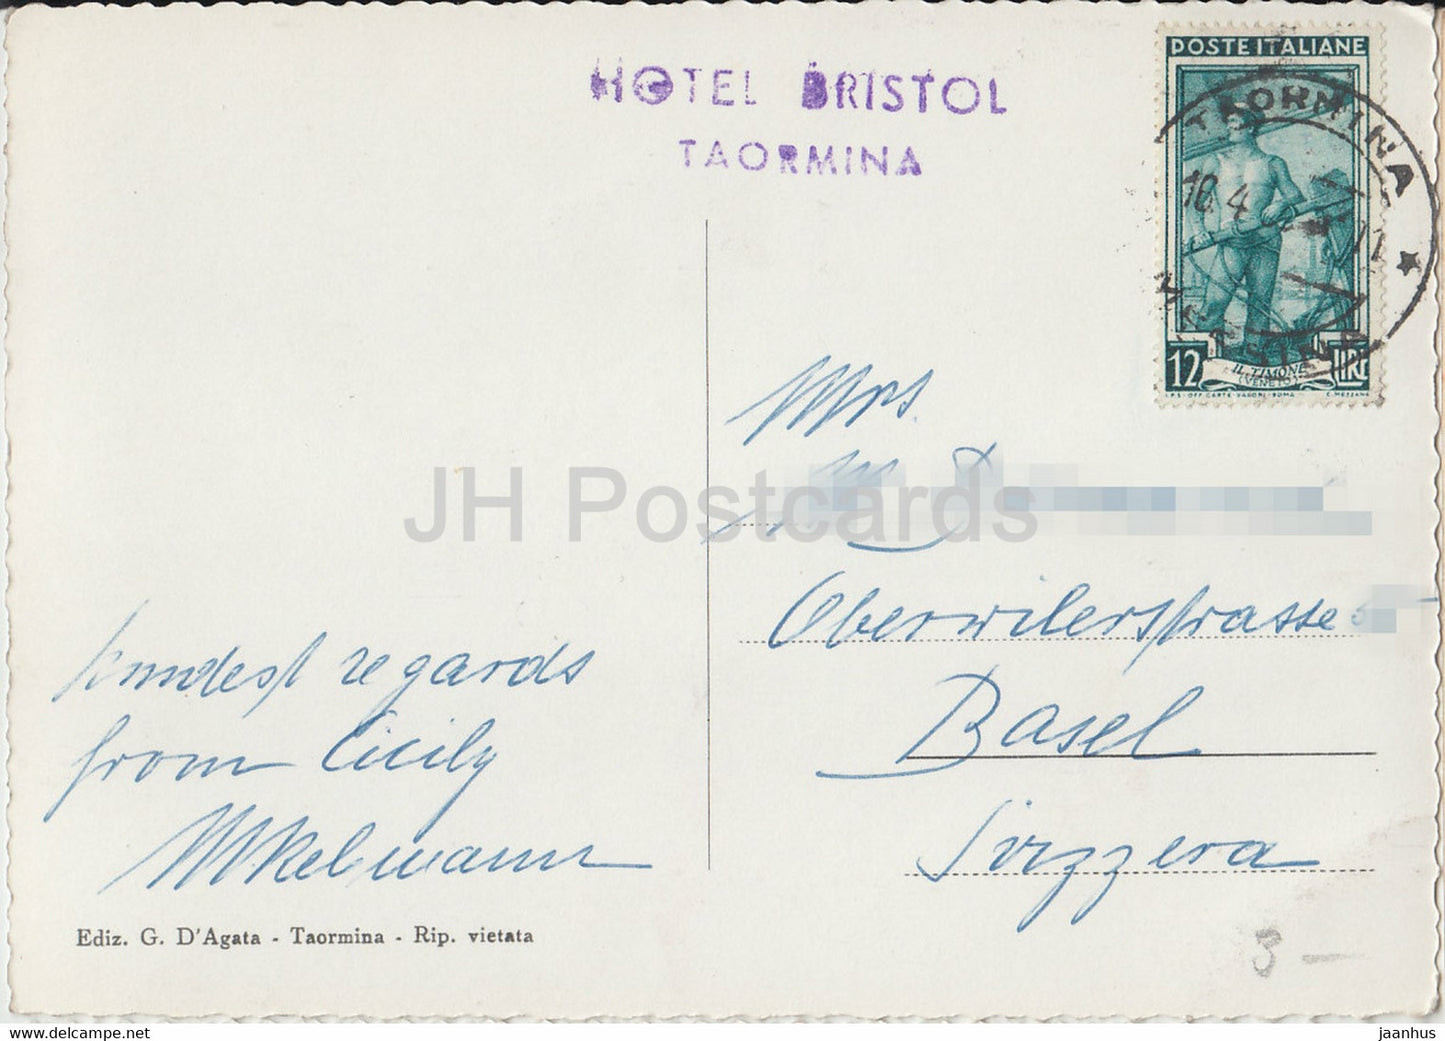 HOTEL BRISTOL
TAORMINA
POSTE ITALIANE
TAORMINA
MESSINA
12 LIRE
IL TIMONE
(VENETO)
I.P.S. OFF. CARTE-VALORI-ROMA C. MEZZANA
Mrs.
M D
Oberwilerstrasse
Basel
Svizzera
kindest regards
from Cicily
Ediz. G. D'Agata - Taormina - Rip. vietata
3 —
JH Postcards
delcampe.net
jaanhus